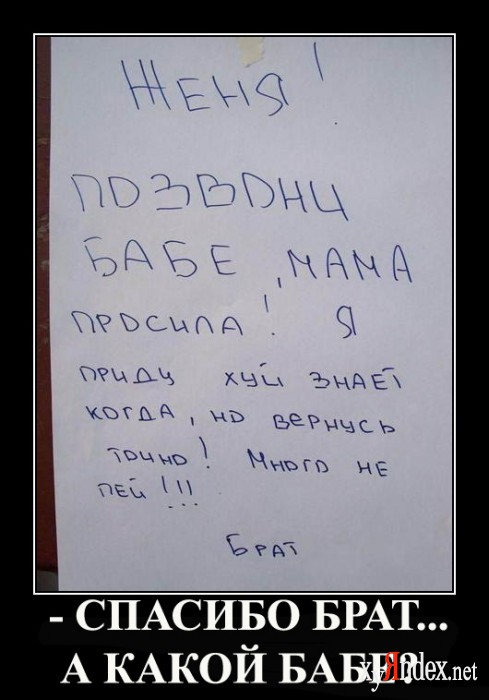 ЖЕНЯ!
ПОЗВОНИ
БАБЕ, МАМА
ПРОСИЛА! Я
ПРИДУ ХУЙ ЗНАЕТ
КОГДА, НО ВЕРНУСЬ
ТОЧНО! МНОГО НЕ
ПЕЙ!!!
БРАТ
- СПАСИБО БРАТ...
А КАКОЙ БАБЕ?
хуЯndex.net